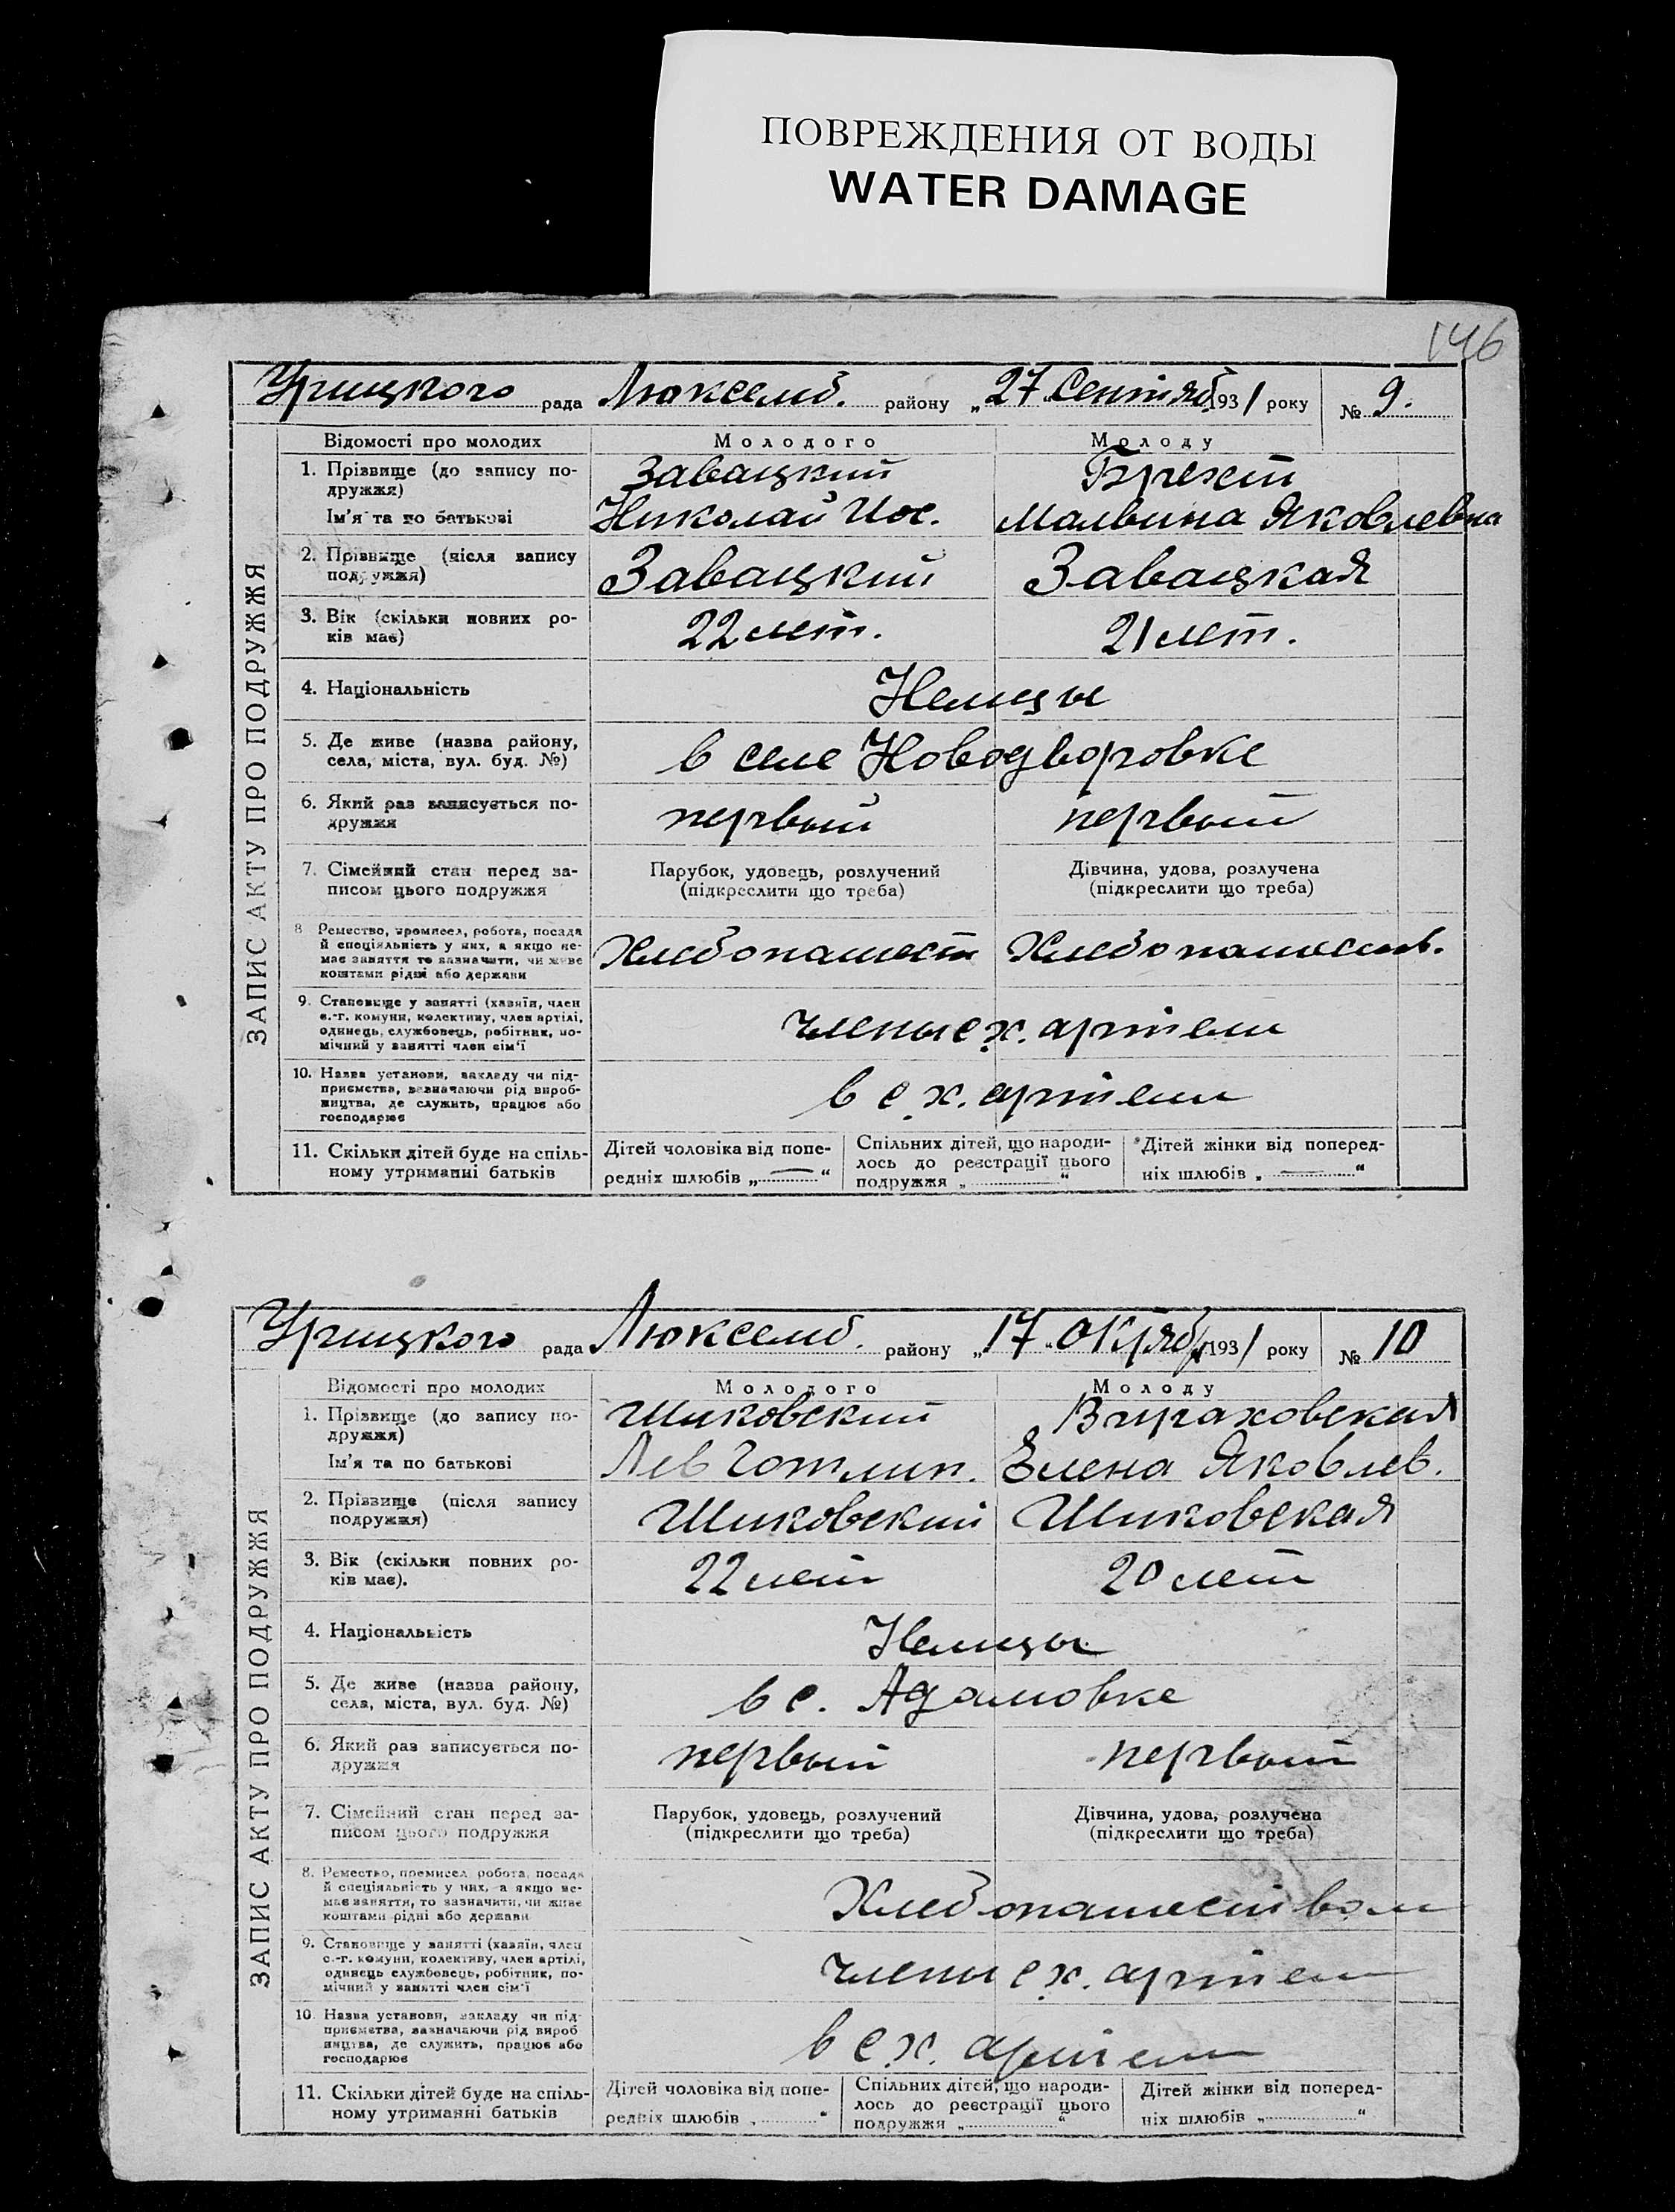 ПОВРЕЖДЕНИЯ ОТ ВОДЫ
WATER DAMAGE
146
Урицкого рада Люксемб. району „27 Сентяб. 1931 року № 9.
ЗАПИС АКТУ ПРО ПОДРУЖЖЯ
Відомості про молодих Молодого Молоду
1. Прізвище (до запису по- Завацкий Брехт
дружжя)
Ім'я та по батькові Николай Иос. Мальвина Яковлевна
2. Прізвище (після запису Завацкий Завацкая
подружжя)
3. Вік (скільки повних ро- 22 лет. 21 лет.
ків має)
4. Національність Немцы
5. Де живе (назва району, в селе Новодворовке
села, міста, вул. буд. №)
6. Який раз записується по- первый первый
дружжя
7. Сімейний стан перед за- Парубок, удовець, розлучений Дівчина, удова, розлучена
писом цього подружжя (підкреслити що треба) (підкреслити що треба)
8 Ремество, промисел, робота, посада
й спеціяльність у них, а якщо не- Хлебопашест Хлебопашеств.
має заняття то зазначити, чи живе
коштами рідні або держави
9. Становище у занятті (хазяїн, член
с.-г. комуни, колективу, член артілі, члены с.х. артели
одинець, службовець, робітник, по-
мічний у занятті член сім'ї
10. Назва установи, закладу чи під-
приємства, зазначаючи рід вироб- в с.х. артели
ництва, де служить, працює або
господарює
11. Скільки дітей буде на спіль- Дітей чоловіка від попе- Спільних дітей, що народи- Дітей жінки від поперед-
ному утриманні батьків редніх шлюбів „ — “ лось до реєстрації цього ніх шлюбів „ — “
подружжя „ “
Урицкого рада Люксемб. району „17 „ Октяб. 1931 року № 10
ЗАПИС АКТУ ПРО ПОДРУЖЖЯ
Відомості про молодих Молодого Молоду
1. Прізвище (до запису по- Шиковский
дружжя)
Ім'я та по батькові Лев Готлип. Елена Яковлев.
2. Прізвище (після запису Шиковский Шиковская
подружжя)
3. Вік (скільки повних ро- 22 лет 20 лет
ків має).
4. Національність Немцы
5. Де живе (назва району, в с. Адамовке
села, міста, вул. буд. №)
6. Який раз записується по- первый первый
дружжя
7. Сімейний стан перед за- Парубок, удовець, розлучений Дівчина, удова, розлучена
писом цього подружжя (підкреслити що треба) (підкреслити що треба)
8. Ремество, промисел робота, посада
й спеціяльність у них, а якщо не- Хлебопашеством
має заняття, то зазначити, чи живе
коштами рідні або держави
9. Становище у занятті (хазяїн, член
с.-г. комуни, колективу, член артілі, члены с.х. артели
одинець службовець, робітник, по-
мічний у занятті член сім'ї
10. Назва установи, закладу чи під-
приємства, зазначаючи рід вироб в с.х. артели
ництва, де служить, працює або
господарює
11. Скільки дітей буде на спіль- Дітей чоловіка від попе- Спільних дітей, що народи- Дітей жінки від поперед-
ному утриманні батьків редніх шлюбів „ “ лось до реєстрації цього ніх шлюбів „ “
подружжя „ “